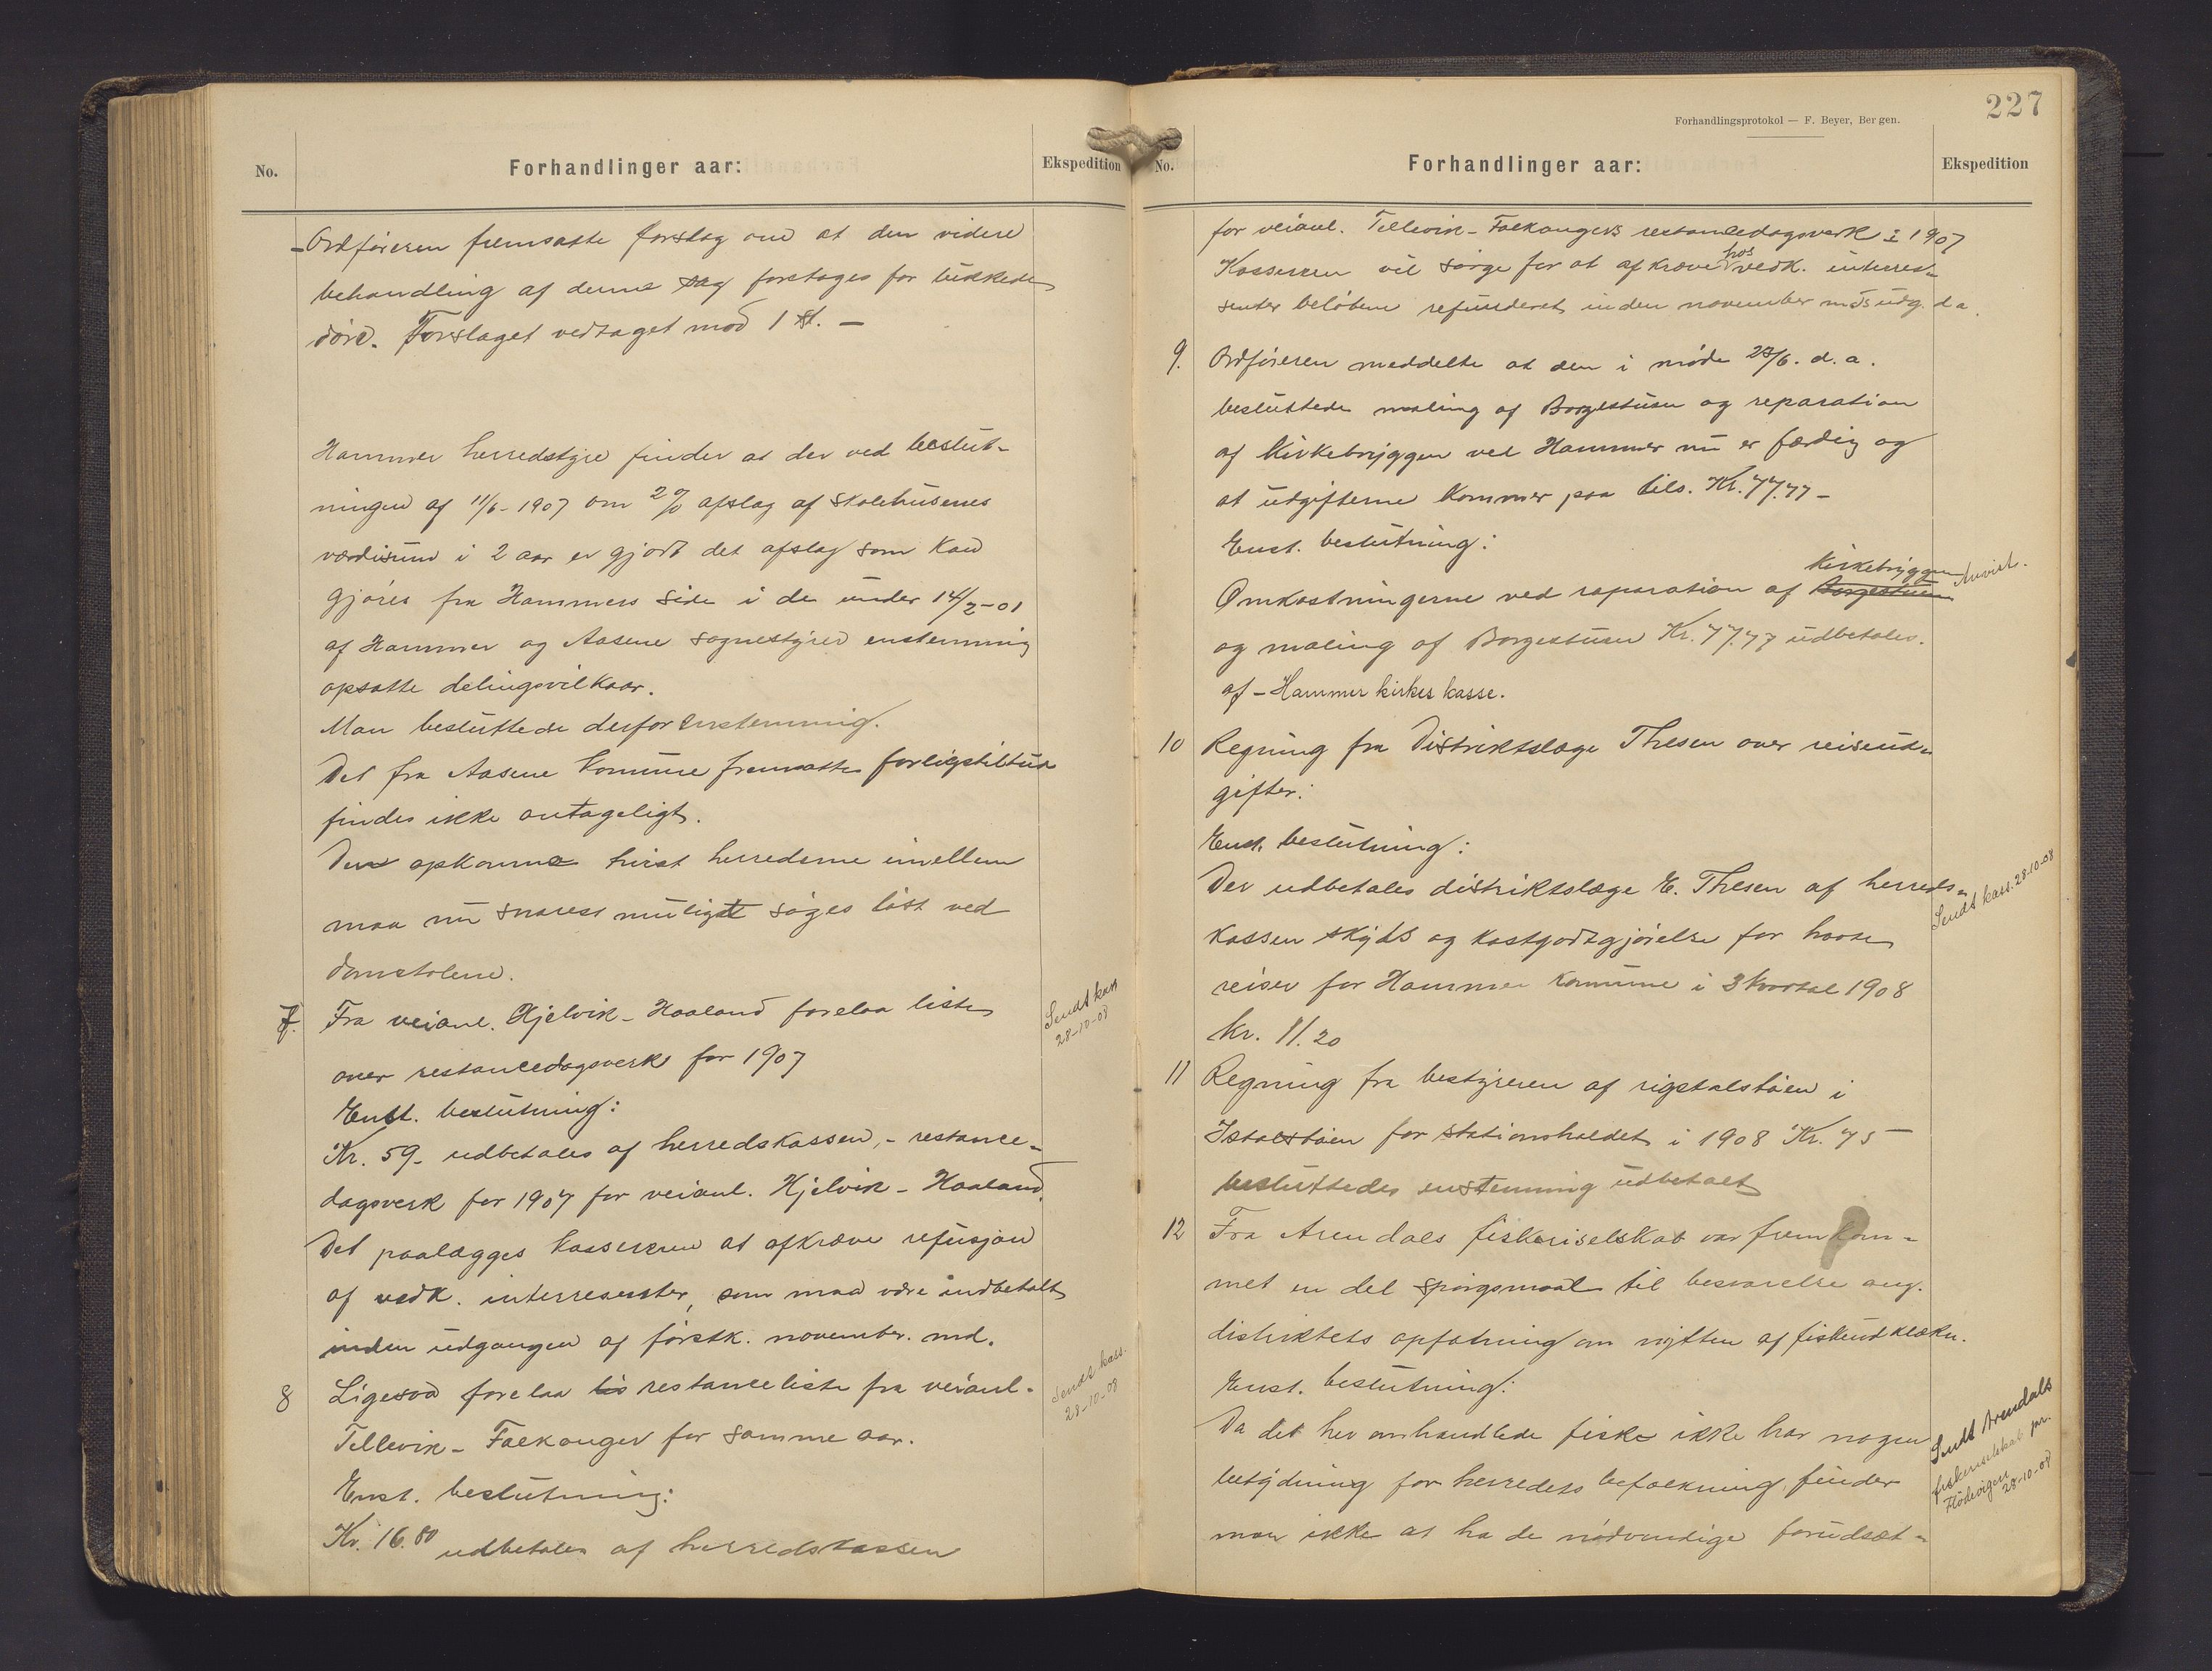 No.
Forhandlinger aar:
Ekspedition
Ordføreren fremsatte forslag om at den videre
behandling af denne sag foretages for lukkede
døre. Forslaget vedtaget mod 1 st. —
Hammer herredstyre finder at der ved beslut-
ningen af 11/6-1907 om 2% afslag af skolehusenes
værdisum i 2 aar er gjort det afslag som kan
gjøres fra Hammers side i de under 14/2-01
af Hammer og Aasene sognestyrer enstemmig
opsatte delingsvilkaar.
Man besluttede derfor enstemmig.
Det fra Aasene komune fremsatte forligstilbud
findes ikke antageligt.
Den opkomne tvist herrederne imellem
maa nu snarest muligst søges løst ved
domstolene.
7. Fra veianl. Hjelvik - Haaland forelaa liste
Sendt kass
28-10-08
over restancedagsverk for 1907
Enst. beslutning:
Kr. 59.- udbetales af herredskassen, - restance-
dagsverk for 1907 for veianl. Hjelvik - Haaland.
Det paalægges kassereren at afkræve refusjon
af vedk. interresenter, som maa være indbetalt
inden udgangen af førstk. november md.
8 Ligesaa forelaa lis restanceliste fra veianl.
Sendt kass.
28-10-08
Tellevik - Falkanger for samme aar.
Enst. beslutning:
Kr. 16.80 udbetales af herredskassen
227
Forhandlingsprotokol — F. Beyer, Bergen.
No.
Forhandlinger aar:
Ekspedition
for veianl. Tellevik - Falkangers restancedagsverk i 1907
Kassereren vil sørge for at afkræve hos vedk. interres-
senter beløbene refunderet inden november mds udg. d a.
9. Ordføreren meddelte at den i møde 23/6. d. a.
besluttede maling af Borgestuen og reparation
af Kirkebryggen ved Hammer nu er færdig og
at udgifterne kommer paa tils. Kr. 77.77 -
Enst. beslutning:
Kirkebryggen
Omkostningerne ved reparation af Borgestuen
Anvist.
og maling af Borgestuen Kr. 77.77 udbetales.
af - Hammer kirkes kasse.
10 Regning fra Distriktslæge Thesen over reiseud-
gifter:
Enst. beslutning:
Der udbetales distriktslæge E. Thesen af herreds-
Sendt kass. 28-10-08
kassen skyds og kostgodtgjørelse for havte
reiser for Hammer komune i 3 kvartal 1908
kr. 11.20
11 Regning fra bestyreren af rigstalstøen i
Istalstøen for stationsholdet i 1908 Kr. 75 —
besluttedes enstemmig udbetalt
12 Fra Arendals fiskeriselskab var fremkom-
met en del spørgsmaal til besvarelse ang.
distriktets opfatning om nytten af fiskeudklækn.
Enst. beslutning:
Da det her omhandlede fiske ikke har nogen
Sendt Arendals
fiskeriselskab pr.
Flødevigen
28-10-08
betydning for herredets befolkning finder
man ikke at ha de nødvendige forudsæt-